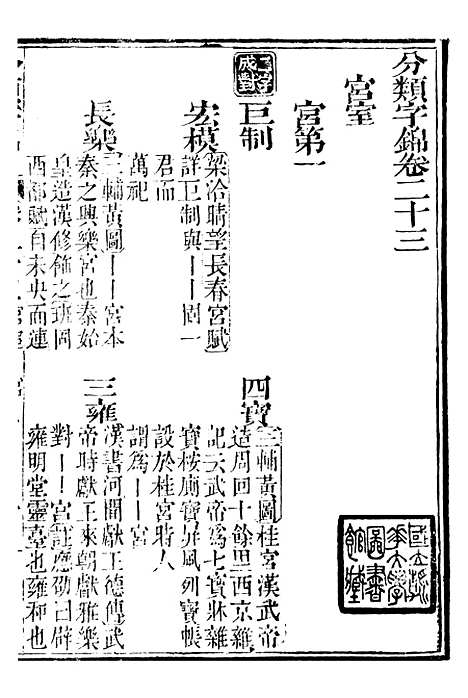 分類字錦卷二十三
宮室
宮第一
成對
巨制
四寶
三輔黃圖桂宮漢武帝
造周回十餘里西京雜
記云武帝爲七寶牀雜
寶桉廁寶屏風列寶帳
設於桂宮時人
謂爲丨丨宮
宏模
梁洽晴望長春宮賦
詳巨制與丨丨固一
君而
萬祀
長樂
三輔黃圖丨丨宮本
秦之興樂宮也秦始
皇造漢修飾之班固
西都賦自未央而連
三雍
漢書河間獻王德傳武
帝時獻王來朝獻雅樂
對丨丨宮註應劭曰辟
雍明堂靈臺也雍和也
國立清
華大學
圖書
館藏